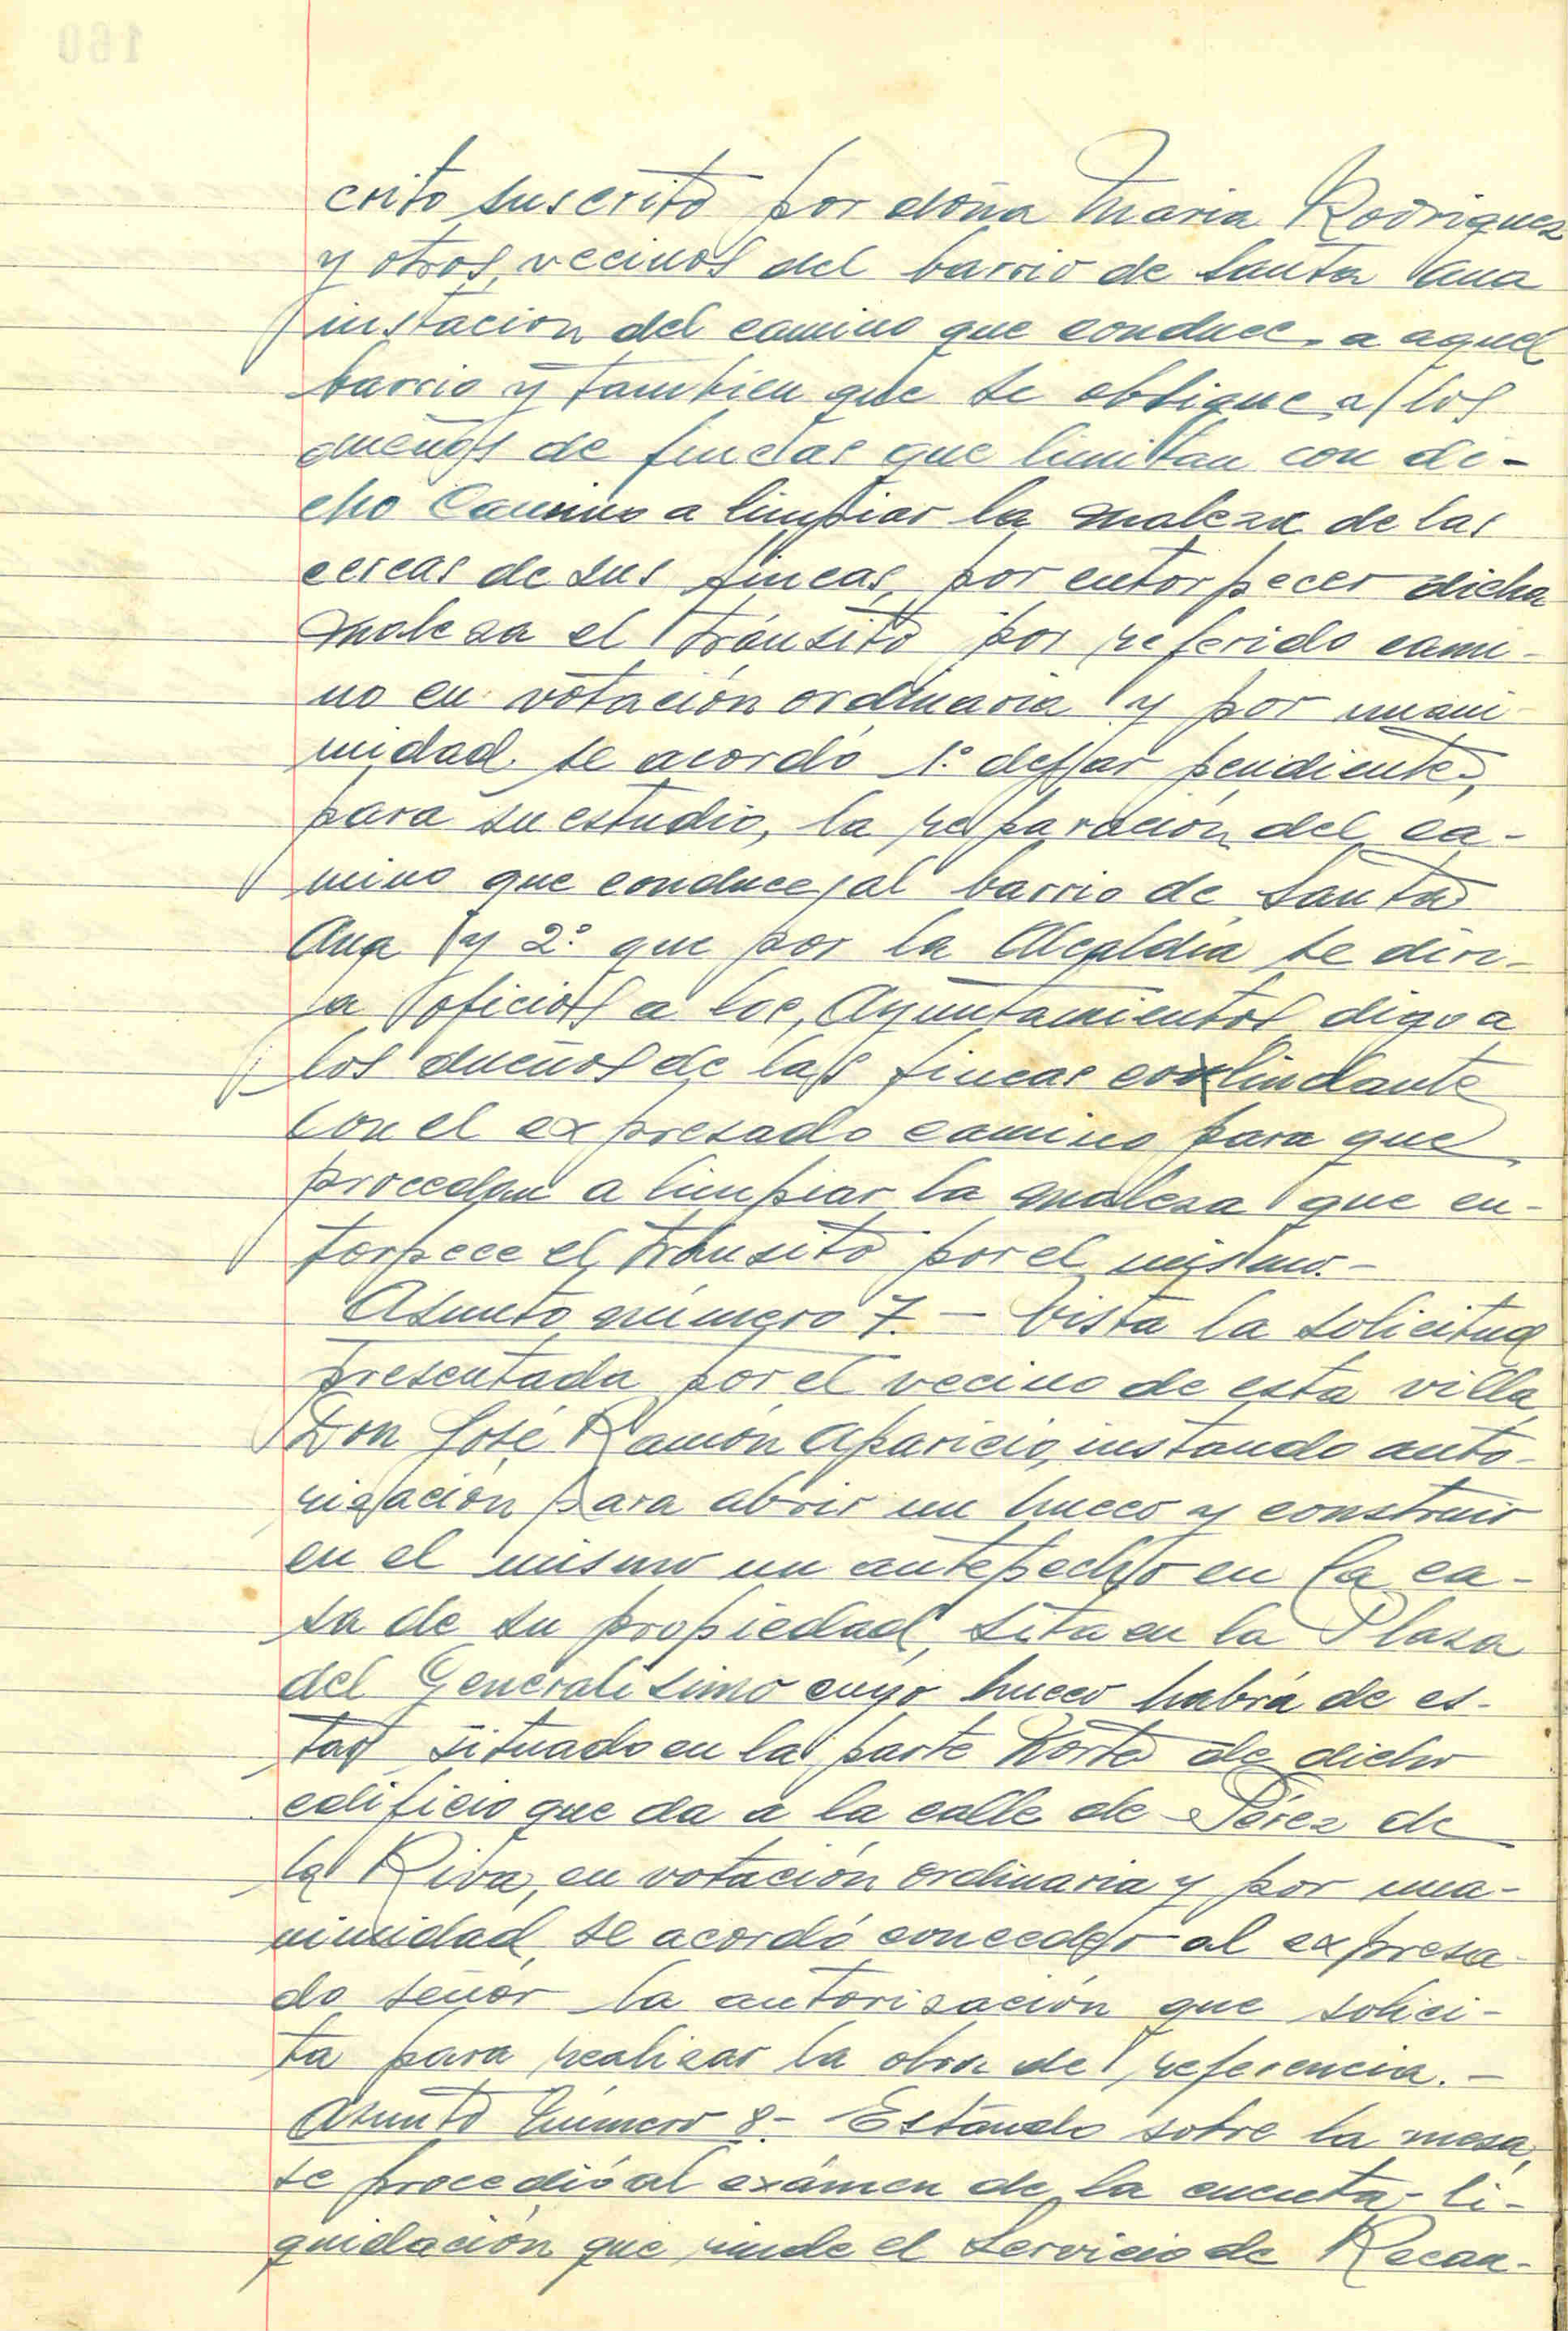 crito suscrito por doña Maria Rodriguez
y otros, vecinos del barrio de Santa Ana
instacion del camino que conduce a aquel
barrio y tambien que se obligue a los
dueños de fincas que limitan con di-
cho Camino a limpiar la maleza de las
cercas de sus fincas, por entorpecer dicha
maleza el tránsito por referido cami-
no en votación ordinaria y por unani
midad se acordó 1.º dejar pendiente,
para su estudio, la reparación del ca-
mino que conduce al barrio de Santa
Ana y 2.º que por la Alcaldía se diri-
ja oficios a los, Ayuntamientos digo a
los dueños de las fincas colindante
con el expresado camino para que
procedan a limpiar la maleza que en-
torpece el tránsito por el mismo.-
Asunto número 7.- Vista la solicitud
presentada por el vecino de esta villa
Don José Ramón Aparicio, instando auto-
rización para abrir un hueco y construir
en el mismo un antepecho en la ca-
sa de su propiedad, sita en la Plaza
del Generalisimo cuyo hueco habrá de es-
tar situado en la parte Norte de dicho
edificio que da a la calle de Pérez de
la Riva, en votación ordinaria y por una-
nimidad, se acordó conceder al expresa-
do señor la autorización que solici-
ta para realizar la obra de referencia.-
Asunto Número 8.- Estando sobre la mesa,
se procedió al exámen de la cuenta-li-
quidación que rinde el Servicio de Recau-
160